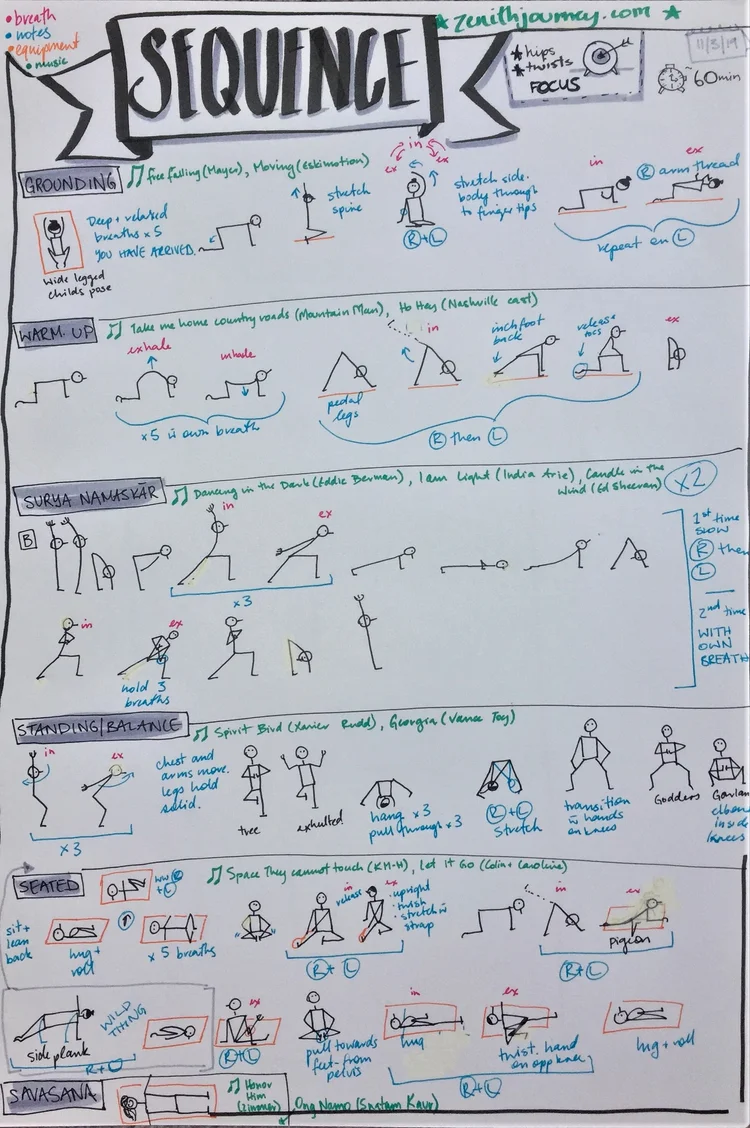 • breath
• notes
• equipment
• music
SEQUENCE
★ zenithjourney.com ★
★ hips
★ twists
FOCUS
11/3/19
60min
GROUNDING
free falling (Mayer), Moving (Eskimotion)
Deep + relaxed
breaths x 5
YOU HAVE ARRIVED.
Wide legged
childs pose
stretch
spine
in
ex
R + L
stretch side.
body through
to finger tips
in
ex
R arm thread
repeat on L
WARM. UP
Take me home country roads (Mountain Man), Ho Hey (Nashville cast)
exhale
inhale
x5 w own breath
pedal
legs
in
inch foot
back
release
toes
ex
R then L
SURYA NAMASKĀR
Dancing in the Dark (Eddie Berman), I am Light (India Arie), Candle in the
Wind (Ed Sheeran)
x2
B
in
ex
x3
1st time
SLOW
R then
L
2nd time
WITH
OWN
BREATH
in
ex
hold 3
breaths
STANDING/BALANCE
Spirit Bird (Xavier Rudd), Georgia (Vance Joy)
in
ex
x3
chest and
arms move.
legs hold
solid.
tree
exhulted
hang x3
pull through x3
R + L
stretch
transition
w hands
on knees
Goddess
elbows
inside
knees
SEATED
Space They cannot touch (KM-H), Let it Go (Colin + Caroline)
sit +
lean
back
hug +
roll
x 5 breaths
in
release
ex
• upright
• twist
• stretch w
strap
R + L
in
ex
pigeon
R + L
side plank
WILD
THING
R + L
ex
R + L
pull towards
feet - from
pelvis
in
hug
ex
twist. hand
on opp knee
R + L
hug + roll
SAVASANA
Honor
Him
(Zimmer)
Ong Namo (Snatam Kaur)